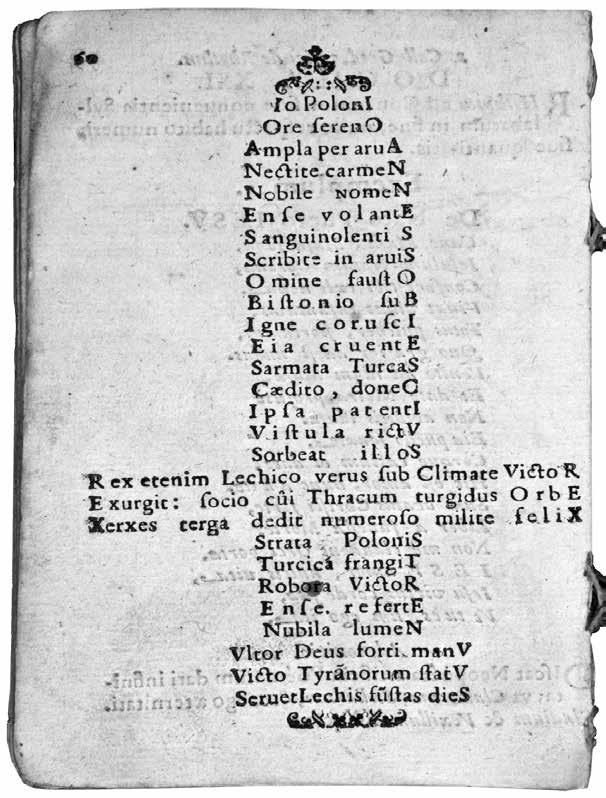 60
Io PolonI
Ore ſerenO
Ampla per aruA
Nectite carmeN
Nobile nomeN
Enſe volantE
Sanguinolenti S
Scribite in aruiS
Omine fauſtO
Biſtonio ſuB
Igne coruſcI
Eia cruentE
Sarmata TurcaS
Cædito, doneC
Ipſa patentI
Viſtula rictV
Sorbeat illoS
Rex etenim Lechico verus ſub Climate VictoR
Exurgit: ſocio cûi Thracum turgidus OrbE
Xerxes terga dedit numeroſo milite feliX
Strata PoloniS
Turcica frangiT
Robora VictoR
Enſe. refertE
Nubila lumeN
Vltor Deus forti manV
Victo Tyrãnorum ſtatV
Seruet Lechis fûſtas dieS